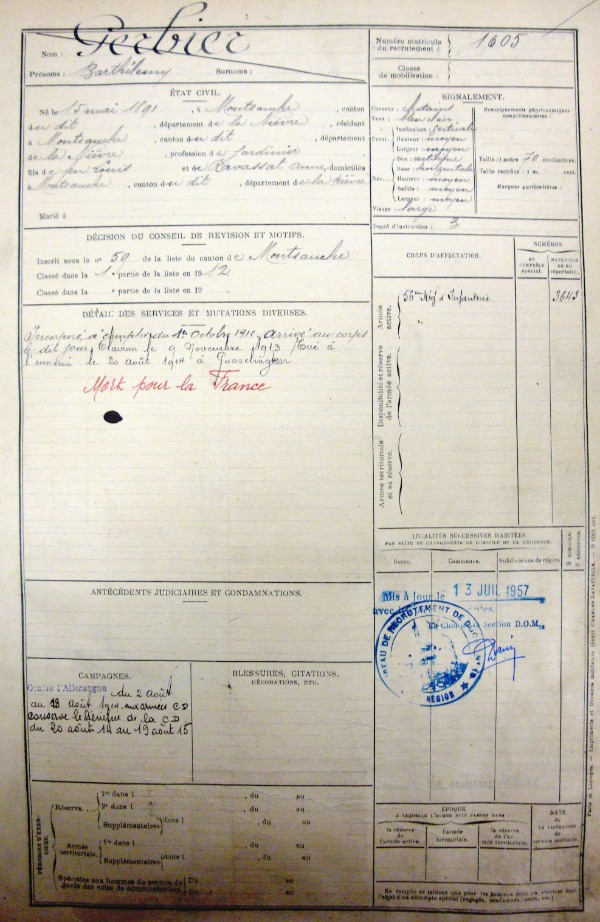 Nom : Gerbier
Prénoms : Barthélemy Surnoms :
Numéro matricule du recrutement : 1605
Classe de mobilisation :
ÉTAT CIVIL.
Né le 15 mai 1891, à Montsauche, canton
du dit, département de la Nièvre, résidant
à Montsauche, canton du dit, département
de la Nièvre, profession de Jardinier
fils de feu Louis et de Ravassat Anne, domiciliés
à Montsauche, canton du dit, département de la Nièvre
Marié à
SIGNALEMENT.
Cheveux : chatains
Yeux : bleu clair
Inclinaison : verticale
Hauteur : moyen
Largeur : moyen
Dos :
Base : horizontale
Hauteur : moyen
Saillie : moyen
Largeur : moyen
Visage : large
Renseignements physionomiques complémentaires :
Taille : 1 mètre 70 centimètres.
Taille rectifiée : 1 m. cent.
Marques particulières :
Degré d'instruction : 3
DÉCISION DU CONSEIL DE REVISION ET MOTIFS.
Inscrit sous le no 59 de la liste du canton de Montsauche
Classé dans la 1e partie de la liste en 1912
Classé dans la e partie de la liste en 19
CORPS D'AFFECTATION.
NUMÉROS
AU CONTRÔLE spécial.
MATRICULE OU AU répertoire.
Armée active.
56ème Rég d'Infanterie
3643
Disponibilité et réserve de l'armée active.
Armée territoriale et sa réserve.
DÉTAIL DES SERVICES ET MUTATIONS DIVERSES.
Incorporé à compter du 1er Octobre 1912, arrivé au corps
le dit jour, Clairon le 9 Novembre 1913 Tué à
l'ennemi le 20 août 1914 à
Mort pour la France
LOCALITÉS SUCCESSIVES HABITÉES
PAR SUITE DE CHANGEMENTS DE DOMICILE OU DE RÉSIDENCE.
Dates. Communes. Subdivisions de région
D DOMICILE. R RÉSIDENCE.
Mis à jour le 13 JUIL 1957
Le Chef de la Section D.O.M.
BUREAU DE RECRUTEMENT DE
RÉGION
ANTÉCÉDENTS JUDICIAIRES ET CONDAMNATIONS.
CAMPAGNES.
Contre l'Allemagne du 2 Août
au 19 Août 1914, aux armées CD
conserve le bénéfice de la CD
du 20 août 14 au 19 août 15
BLESSURES, CITATIONS,
DÉCORATIONS, ETC.
PÉRIODES D'EXERCICES.
Réserve.
1re dans l , du au
2e dans l , du au
Supplémentaires dans l , du au
Armée territoriale.
1re dans l , du au
Supplémentaires dans l , du au
Spéciales aux hommes du service de garde des voies de communication. Du au
Du au
ÉPOQUE
À LAQUELLE L'HOMME DOIT PASSER DANS :
la réserve de l'armée active.
l'armée territoriale.
la réserve de l'armée territoriale.
DATE de LA LIBÉRATION du service militaire.
Paris et Limoges. — Imprimerie et librairie militaires Henri CHARLES-LAVAUZELLE.